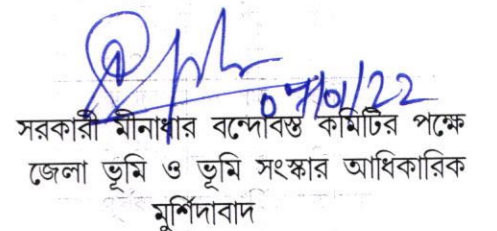 07/01/22
সরকারী মীনাধার বন্দোবস্ত কমিটির পক্ষে
জেলা ভূমি ও ভূমি সংস্কার আধিকারিক
মুর্শিদাবাদ